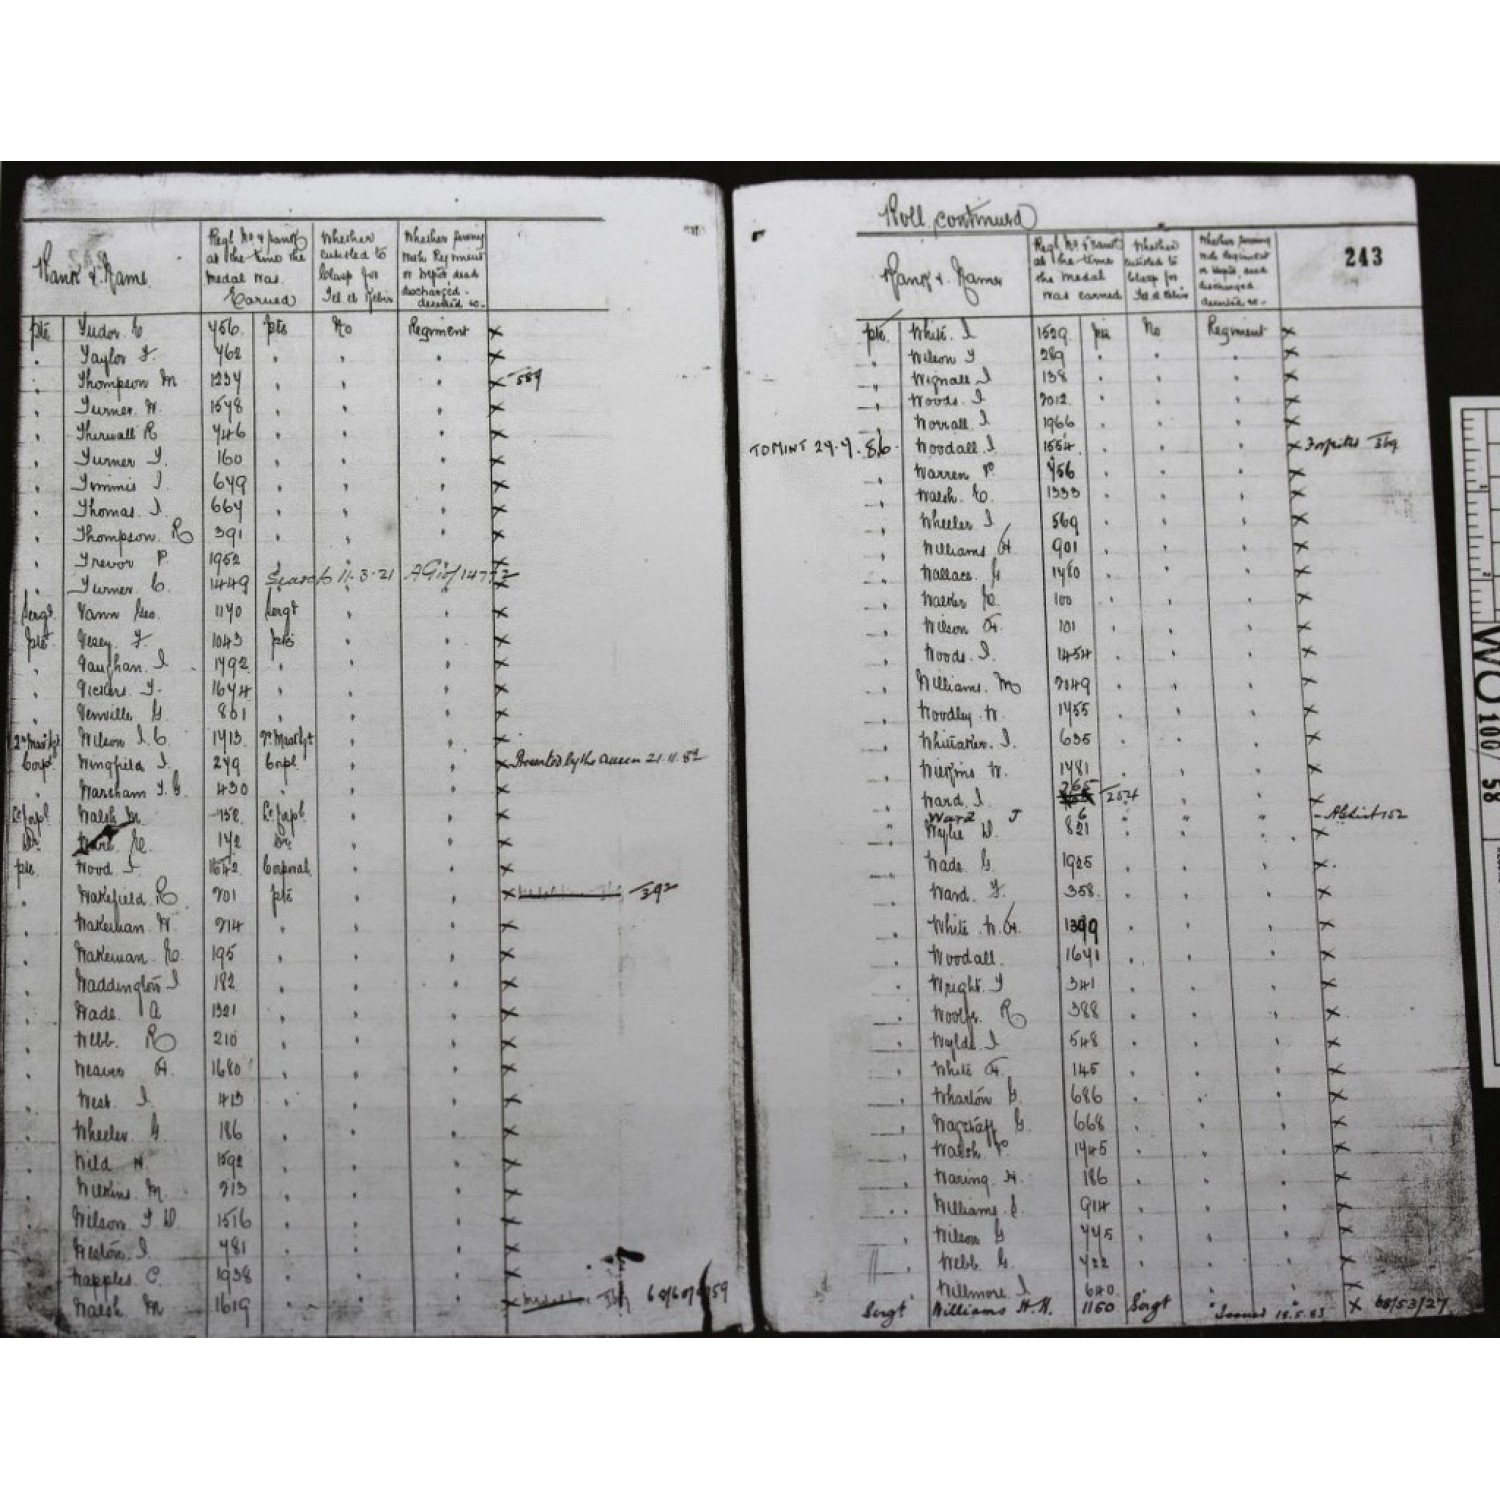 Rank & Name
Regl No & rank at the time the Medal was Earned
Whether entitled to Clasp for Tel el Kebir
Whether serving with Regiment or Depot dead discharged deserted &c.
pte Tudor E 756 pte No Regiment x
" Taylor F. 762 " " " x
" Thompson M 1237 " " " x 559
" Turner. W. 1578 " " " x
" Thirwall R 746 " " " x
" Turner J. 160 " " " x
" Timmis J. 679 " " " x
" Thomas J. 667 " " " x
" Thompson. R 391 " " " x
" Trevor P. 1952 " " " x
" Turner C. 1449 Search 11.3.21 x
Sergt Vann Geo. 1170 Sergt " " x
pte Vesey F. 1043 pte " " x
" Vaughan. J. 1792 " " " x
" Vickers. J. 1674 " " " x
" Venville G. 801 " " " x
Qr Mast Sgt Wilson J. C. 1713. Qr Mast Sgt " " x
Corpl. Wingfield J. 279 Corpl. " " x Presented by the Queen 21.11.82
" Wareham J. G. 430 " " " x
Lc Corpl Walsh M. 752 Lc Corpl. " " x
Dr. Ware. E. 172 Dr. " " x
pte Wood J. 1642. Corporal " " x
" Wakefield. R. 701 pte " " x 392
" Wakeman. W. 714 " " " x
" Wakeman. E. 195 " " " x
" Waddington J 182 " " " x
" Wade. A 1321 " " " x
" Webb. R 210 " " " x
" Weaver H. 1680 " " " x
" West. J. 413 " " " x
" Wheeler. G. 186 " " " x
" Wild W 1592 " " " x
" Wilkins. M. 713 " " " x
" Wilson. J. D. 1516 " " " x
" Weston. J. 781 " " " x
" Wapples. C. 1938 " " " x
" Walsh M 1619 " " " x
Roll continued
243
Rank & Name
Regl. No. & rank at the time the medal was earned
Whether entitled to Clasp for Tel el Kebir
Whether serving with Regiment or Depot, dead discharged deserted &c.
pte. White. J 1529 pte No Regiment x
" Wilson J 289 " " " x
" Wignall J 138 " " " x
" Woods. J 2012 " " " x
" Worrall. J 1966 " " " x
TO MINT 29.9.86. Woodall. J. 1554. " " " x Forfeits 369
" Warren P. 756 " " " x
" Walsh. E. 1333 " " " x
" Wheeler J 569 " " " x
" Williams H 901 " " " x
" Wallace. G 1780 " " " x
" Walker E. 100 " " " x
" Wilson H. 101 " " " x
" Woods. J. 1454 " " " x
" Williams. M 2049 " " " x
" Woodley. W. 1755 " " " x
" Whittaker. J. 635 " " " x
" Wilkins W. 1781 " " " x
" Ward. J 265 " " " x
" Ward J 6 " " "
" Wylie D. 821 " " " x
" Wade. G. 1925 " " " x
" Ward. F. 358. " " " x
" White. W. H. 1399 " " " x
" Woodall. 1671 " " " x
" Wright. J 341 " " " x
" Woolfe. R 388 " " " x
" Wylde. J 548 " " " x
" White H. 145 " " " x
" Wharton G. 686 " " " x
" Wagstaff G. 668 " " " x
" Walsh P. 1745 " " " x
" Waring. H. 186 " " " x
" Williams. J. 914 " " " x
" Wilson G 775 " " " x
" Webb G. 722 " " " x
" Willmore J 640 " " " x
Sergt Williams H. H. 1150 Sergt Issued 18.5.83 x 68/53/27
WO 100/58